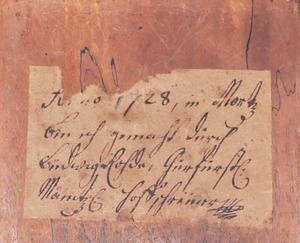 Anno 1728, in Mertz
bin ich gemacht durch
Ludwig Rohde, Churfürstl.
Maintz. Hofschreiner